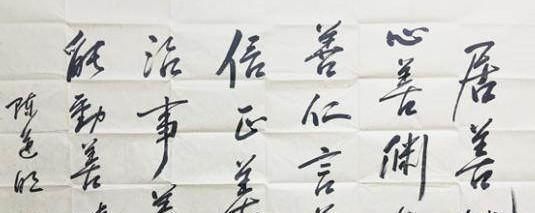 居善
心善渊
善仁言善
信正善
治事善
能動善
陈道明